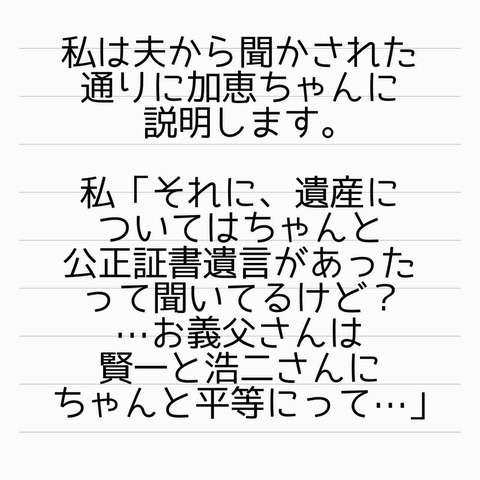 私は夫から聞かされた
通りに加恵ちゃんに
説明します。
私「それに、遺産に
ついてはちゃんと
公正証書遺言があった
って聞いてるけど？
…お義父さんは
賢一と浩二さんに
ちゃんと平等にって…」